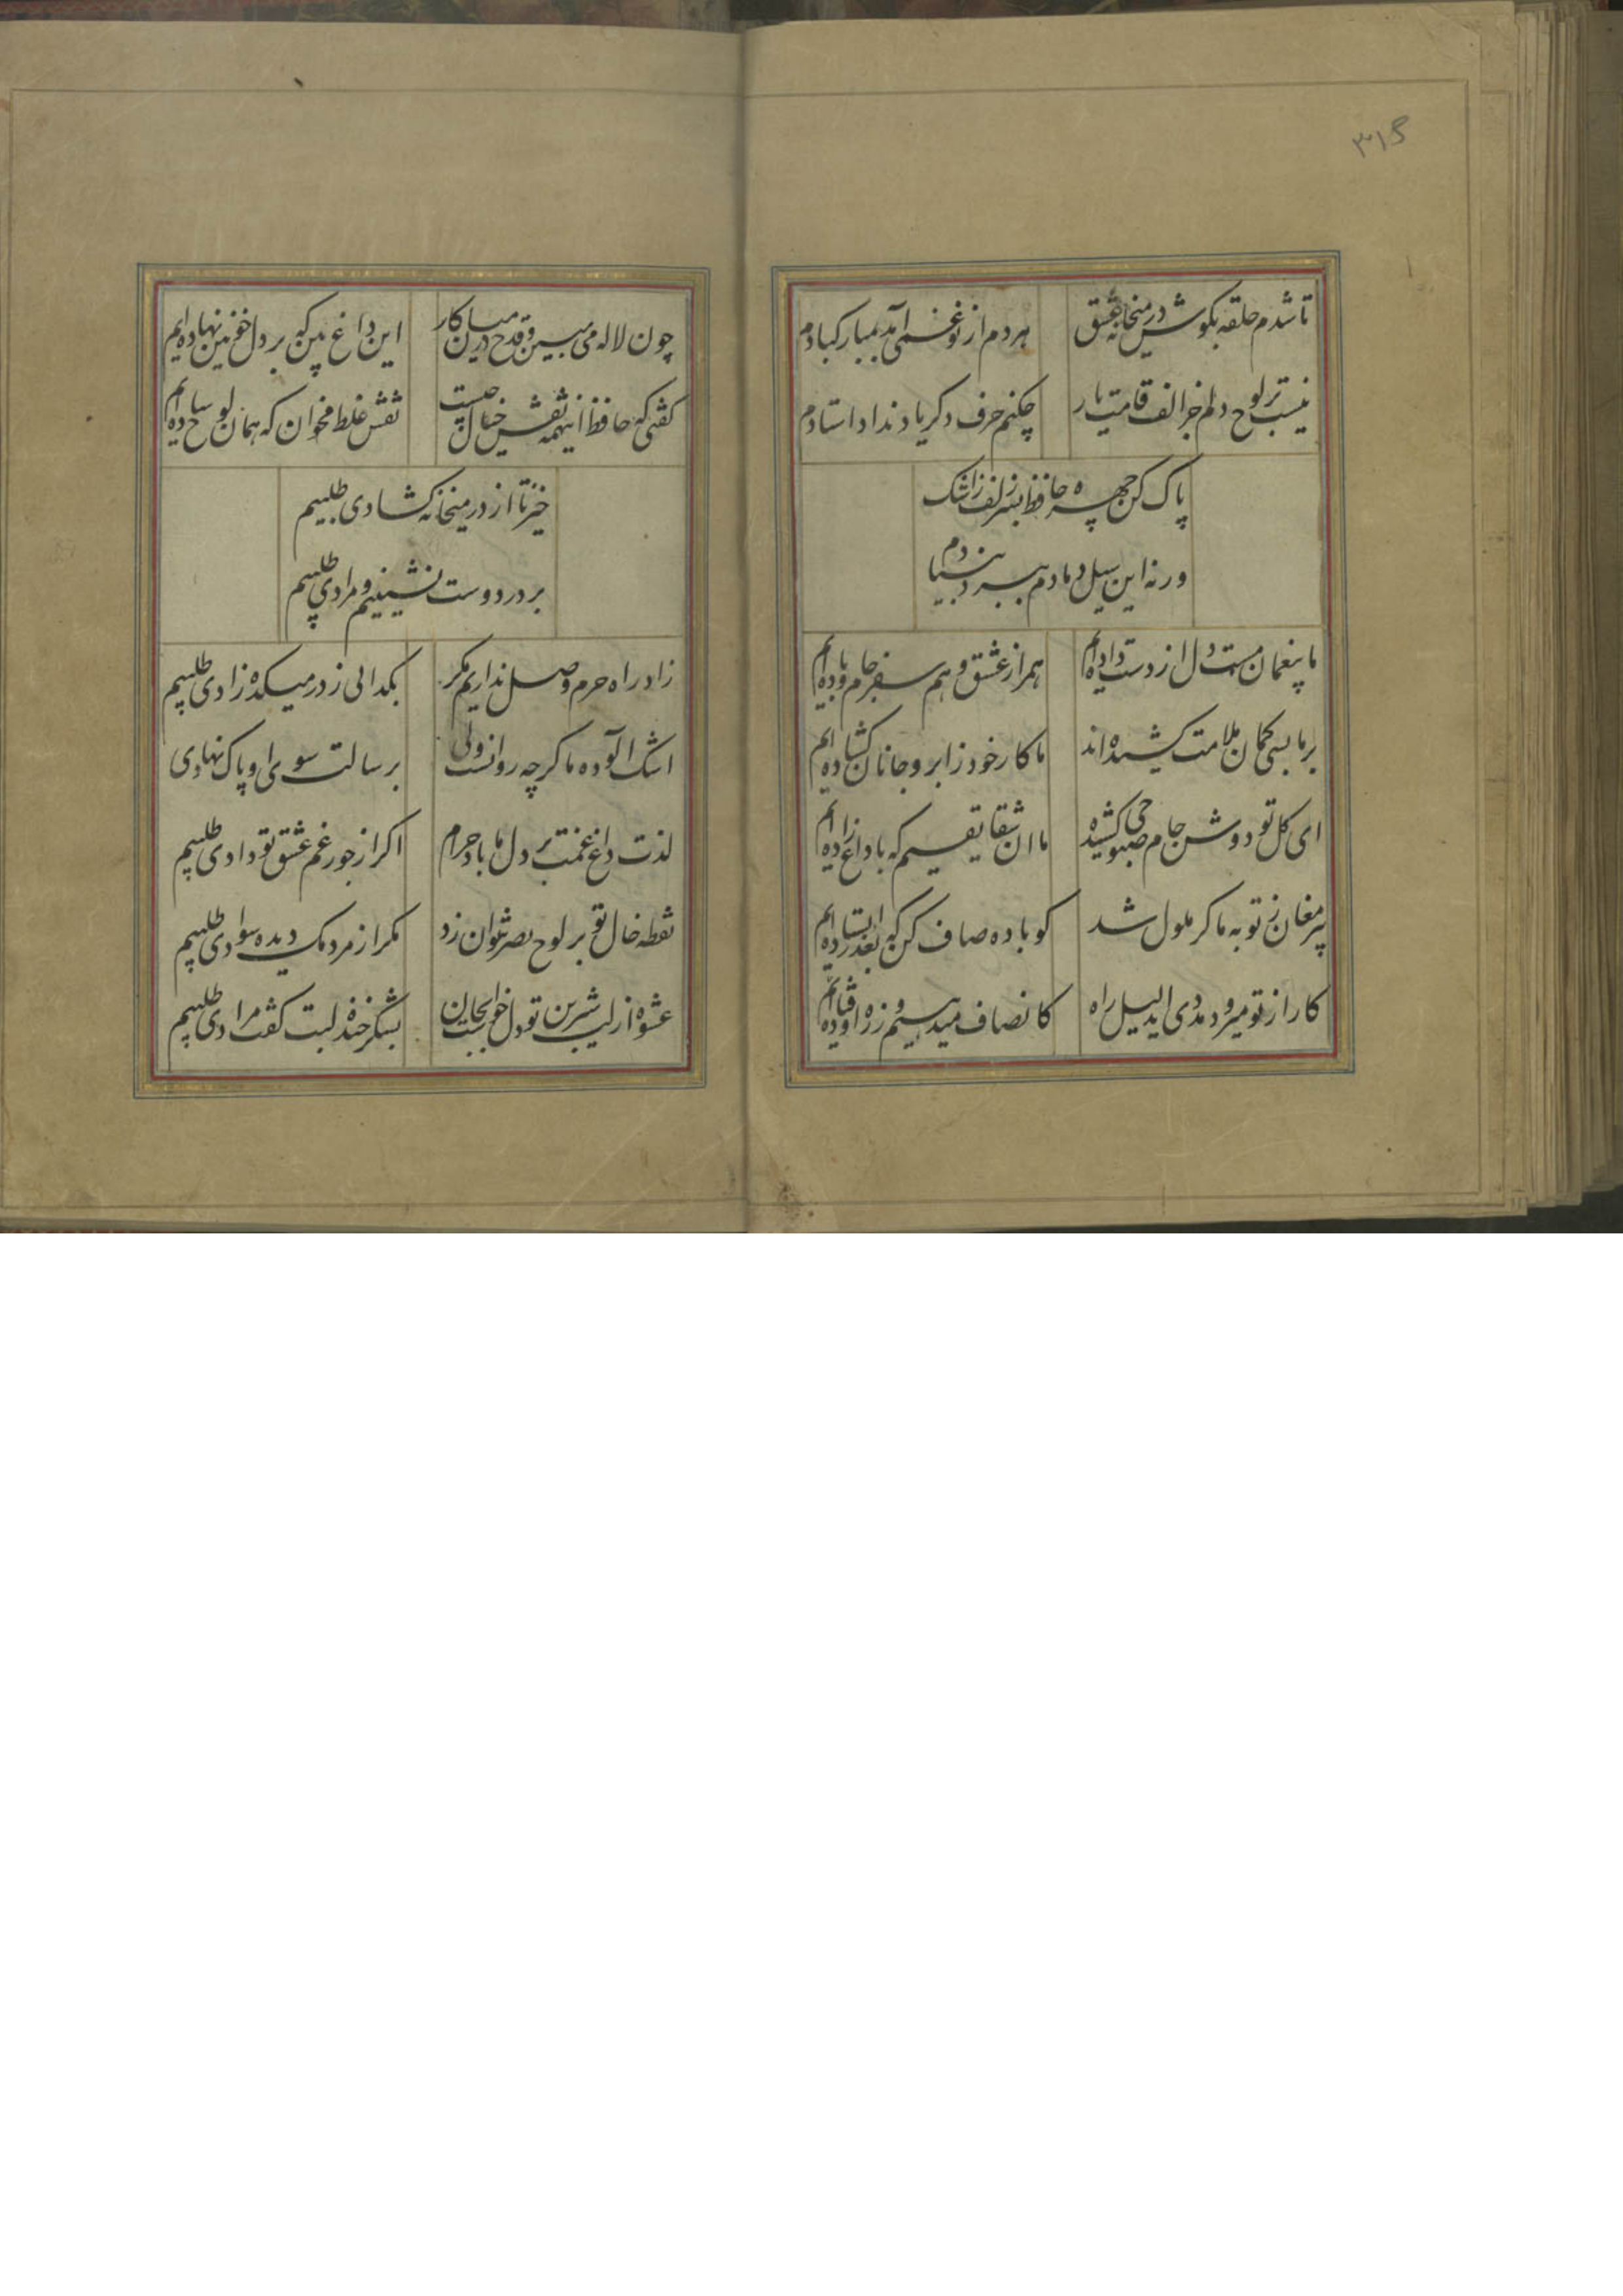 ۳۱۵
تا شدم حلقه بکوش در میخانه عشق هر دم از نو غمی آمد بمبارکبادم
نیست بر لوح دلم جز الف قامت یار چکنم حرف دکر یاد نداد استادم
پاک کن چهره حافظ بسر زلف ز اشک
ور نه این سیل دمادم ببرد بنیادم
ما بیغمان مست دل از دست داده‌ایم همراز عشق و هم سفر جام و باده‌ایم
بر ما بسی کمان ملامت کشیده‌اند ما کار خود ز ابرو جانان کشاده‌ایم
ای کل تو دوش جام صبوحی کشیده ما ان شقایقیم که با داغ زاده‌ایم
پیر مغان ز توبه ما کر ملول شد کو باده صاف کن که بعذر ایستاده‌ایم
کار از تو میرود مددی ای دلیل راه کانصاف میدهیم و ز راه اوفتاده‌ایم
چون لاله می مبین و قدح در میان کار این داغ بین که بر دل خونین نهاده‌ایم
کفتی که حافظ اینهمه نقش خیال چیست نقش غلط مخوان که همان لوح ساده‌ایم
خیز تا از در میخانه کشادی طلبیم
بر در دوست نشینیم و مرادی طلبیم
زاد راه حرم وصل نداریم مکر بکدائی ز در میکده زادی طلبیم
اشک الوده ما کرچه روانست ولی برسالت سوی او پاک نهادی
لذت داغ غمت بر دل ما باد حرام اکر از جور غم عشق تو دادی طلبیم
نقطه خال تو بر لوح بصر نتوان زد مکر از مردمک دیده سوادی طلبیم
عشوه از لب شیرین تو دل خواست بجان بشکر خنده لبت کفت مرادی طلبیم